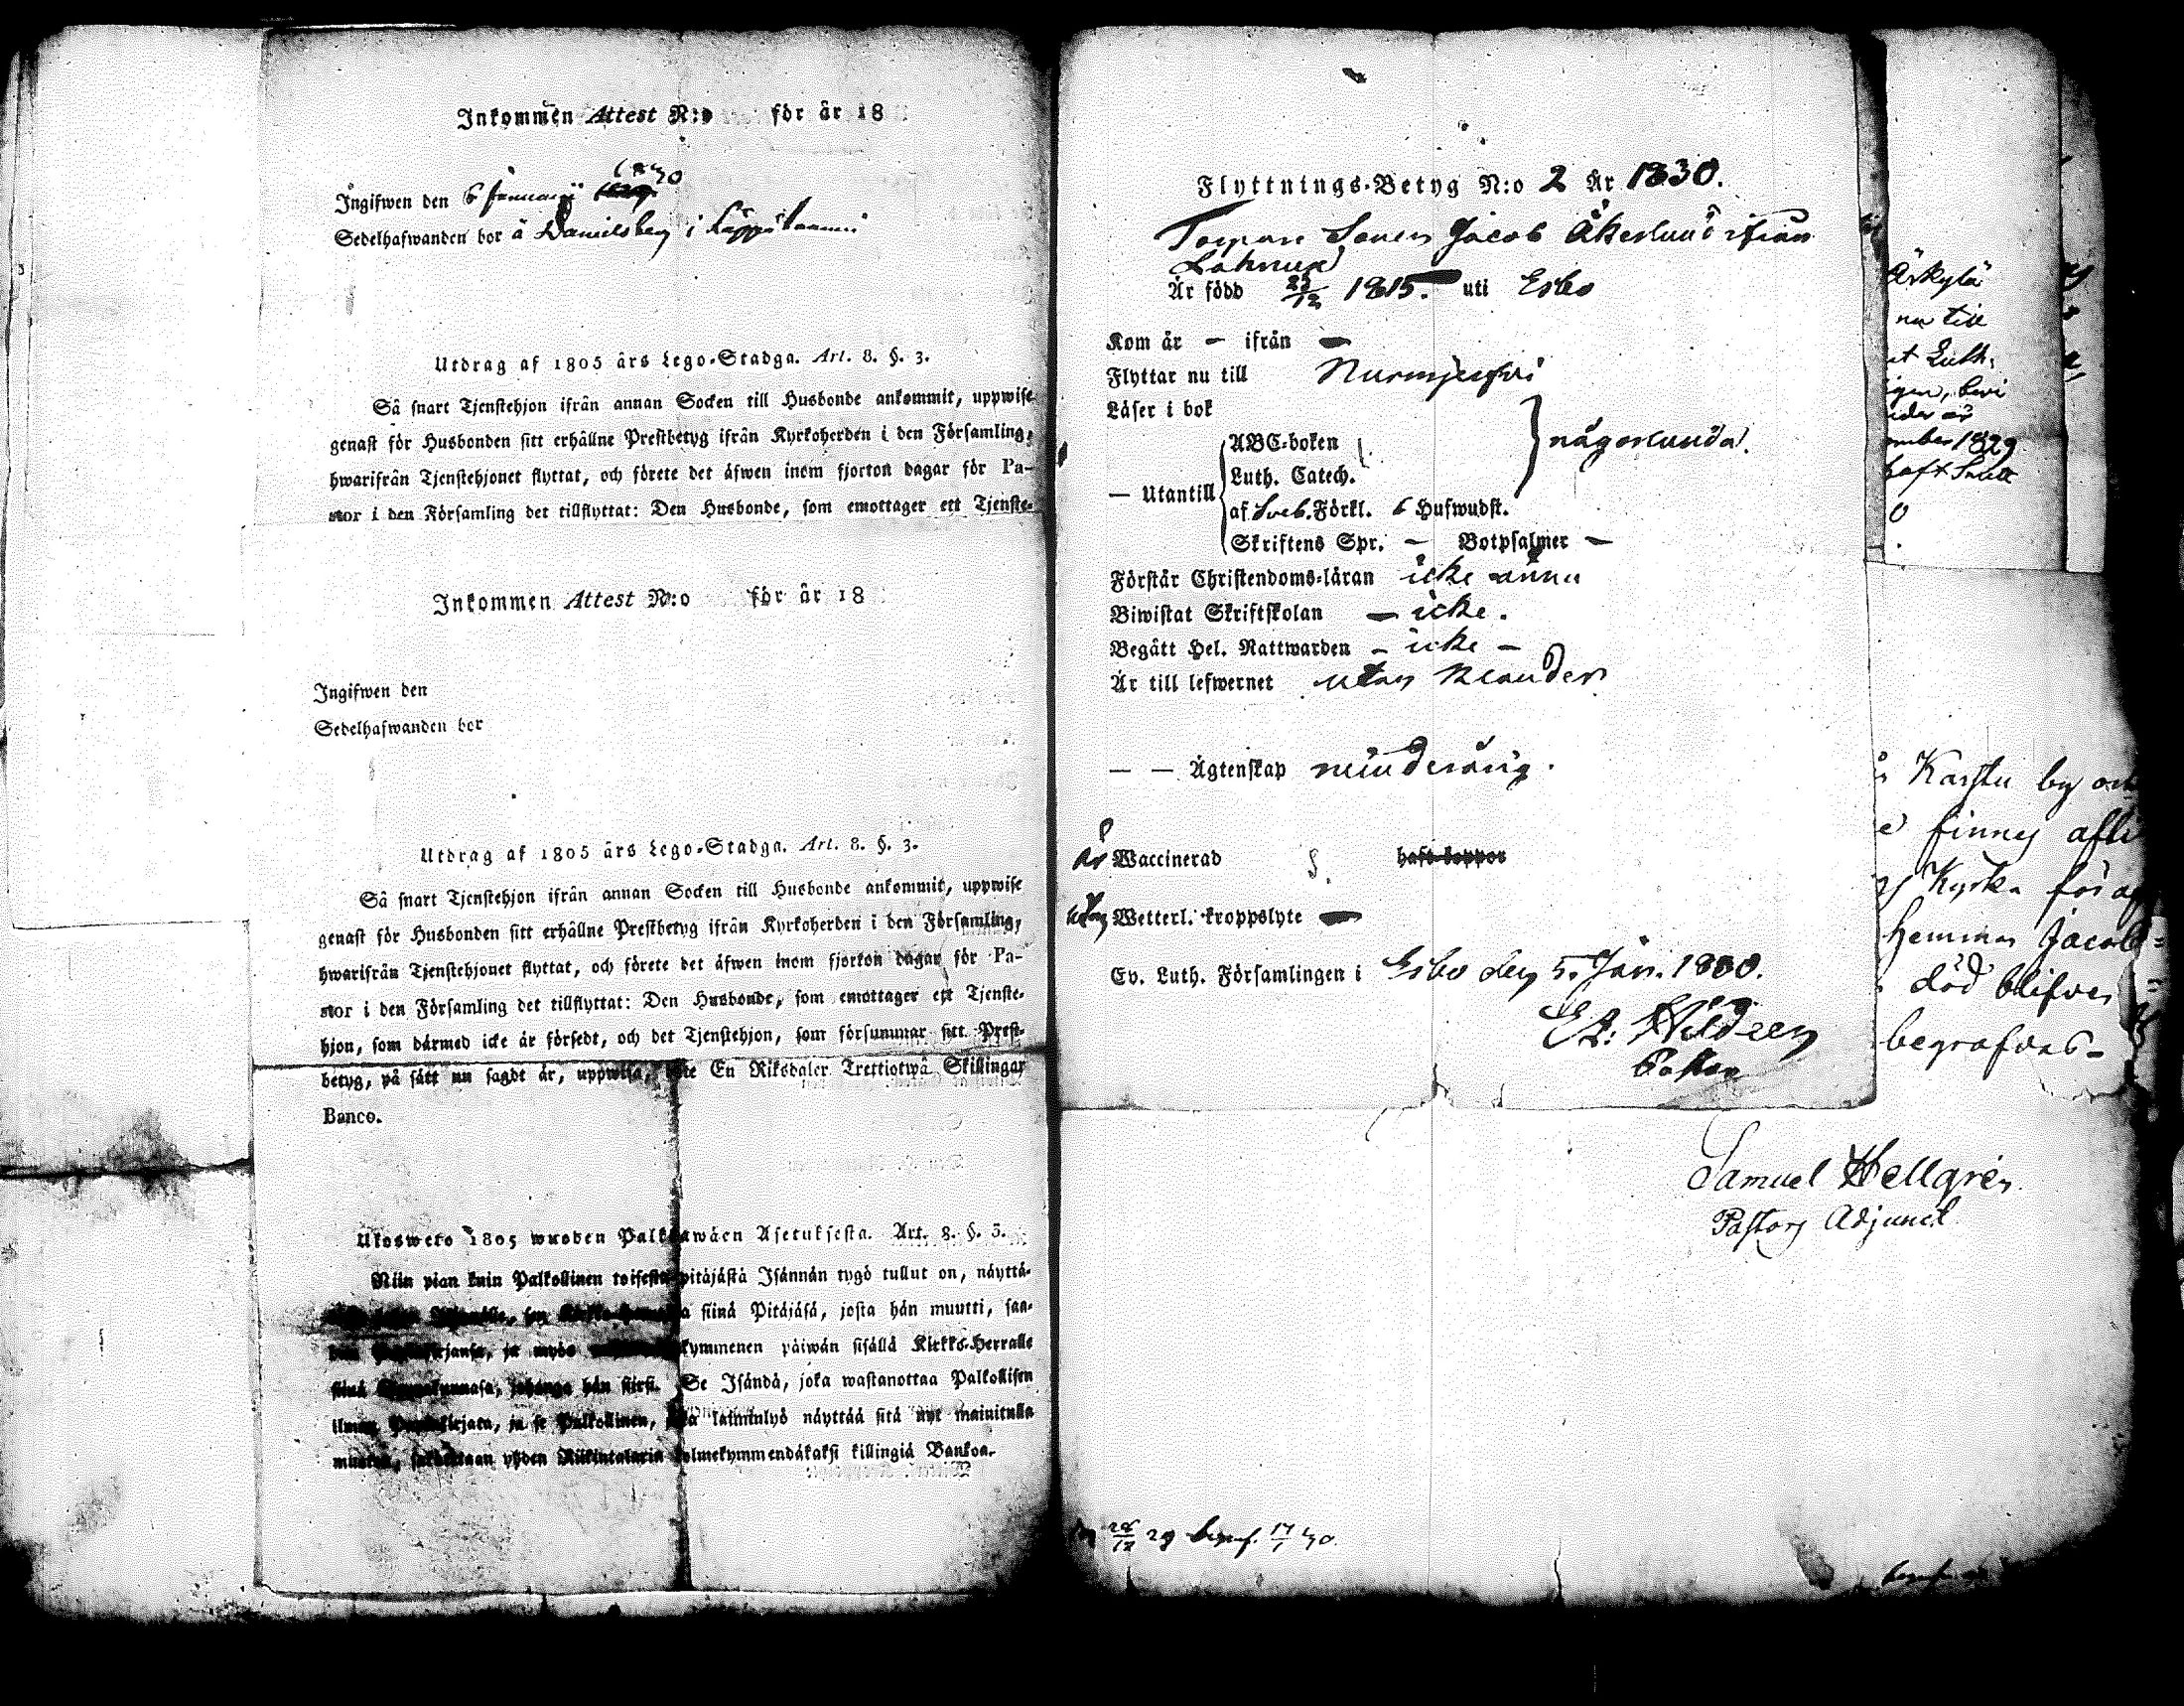 Inkommen Attest N:o för år 18
Ingifwen den 6 Januarii 1830
Sedelhafwanden bor å Danielsberg i
Utdrag af 1805 års Lego-Stadga. Art. 8. §. 3.
Så snart Tjenstehjon ifrån annan Socken till Husbonde ankommit, uppwise
genast för Husbonden sitt erhållne Prestbetyg ifrån Kyrkoherden i den Församling,
hwarifrån Tjenstehjonet flyttat, och förete det äfwen inom fjorton dagar för Pa-
stor i den Församling det tillflyttat: Den Husbonde, som emottager ett Tjenste-
Inkommen Attest N:o för år 18
Ingifwen den
Sedelhafwanden bor
Utdrag af 1805 års Lego-Stadga. Art. 8. §. 3.
Så snart Tjenstehjon ifrån annan Socken till Husbonde ankommit, uppwise
genast för Husbonden sitt erhållne Prestbetyg ifrån Kyrkoherden i den Församling,
hwarifrån Tjenstehjonet flyttat, och förete det äfwen inom fjorton dagar för Pa-
stor i den Församling det tillflyttat: Den Husbonde, som emottager ett Tjenste-
hjon, som därmed icke är försedt, och det Tjenstehjon, som försummar sitt Prest-
betyg, på sätt nu sagdt är, uppwisa, En Riksdaler Trettiotwå Skillingar
Banco.
Ulosweto 1805 wuoden Palkkawäen Asetuksesta. Art. 8. §. 3.
Niin pian kuin Palkollinen toisesta pitäjästä Isännän tygö tullut on, näyttä-
siinä Pitäjäsä, josta hän muutti, saa-
ja myös kymmenen päiwän sisällä Kirkko-Herralle
siinä hän siirsi. Se Isändä, joka wastanottaa Palkollisen
ilman ja se Palkollinen, laiminlyö näyttää sitä nyt mainitulla
yhden Riikintalarin kolmekymmendäkaksi killingiä Bankoa.
Flyttnings-Betyg N:o 2 År 1830.
Torpare Sonen Jacob Åkerlund ifrån
Lahnus
Är född 23/12 1815. uti Esbo
Kom år — ifrån —
Flyttar nu till Nurmijerfvi
Läser i bok
ABC-boken
någorlunda.
Luth. Catech.
— Utantill
af Sveb. Förkl. 6 Hufwudst.
Skriftens Spr. — Botpsalmer —
Förstår Christendoms-läran icke ännu
Biwistat Skriftskolan — icke.
Begått Hel. Nattwarden — icke —
Är till lefwernet utan klander
— — Ägtenskap minderårig.
är Waccinerad haft koppor
utan Wetterl. kroppslyte —
Ev. Luth. Församlingen i Esbo den 5. Jan. 1830.
Pastor
Ärkylä
nu till
Luth.
1829
Karstu by
finnes
Kyrka för
hemman Jacob
död blifven
begrafvas-
Samuel Hellgrén
Pastors Adjunct